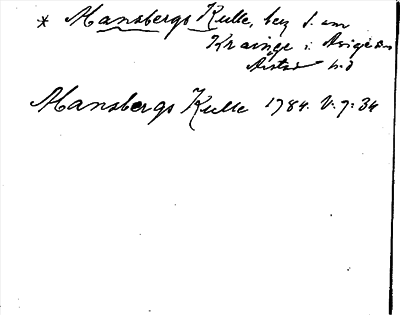 * Mansbergs Kulle, berg S. om
Krainge i Asige sn
Årstad hd
Mansbergs Kulle 1784. V. 7: 34